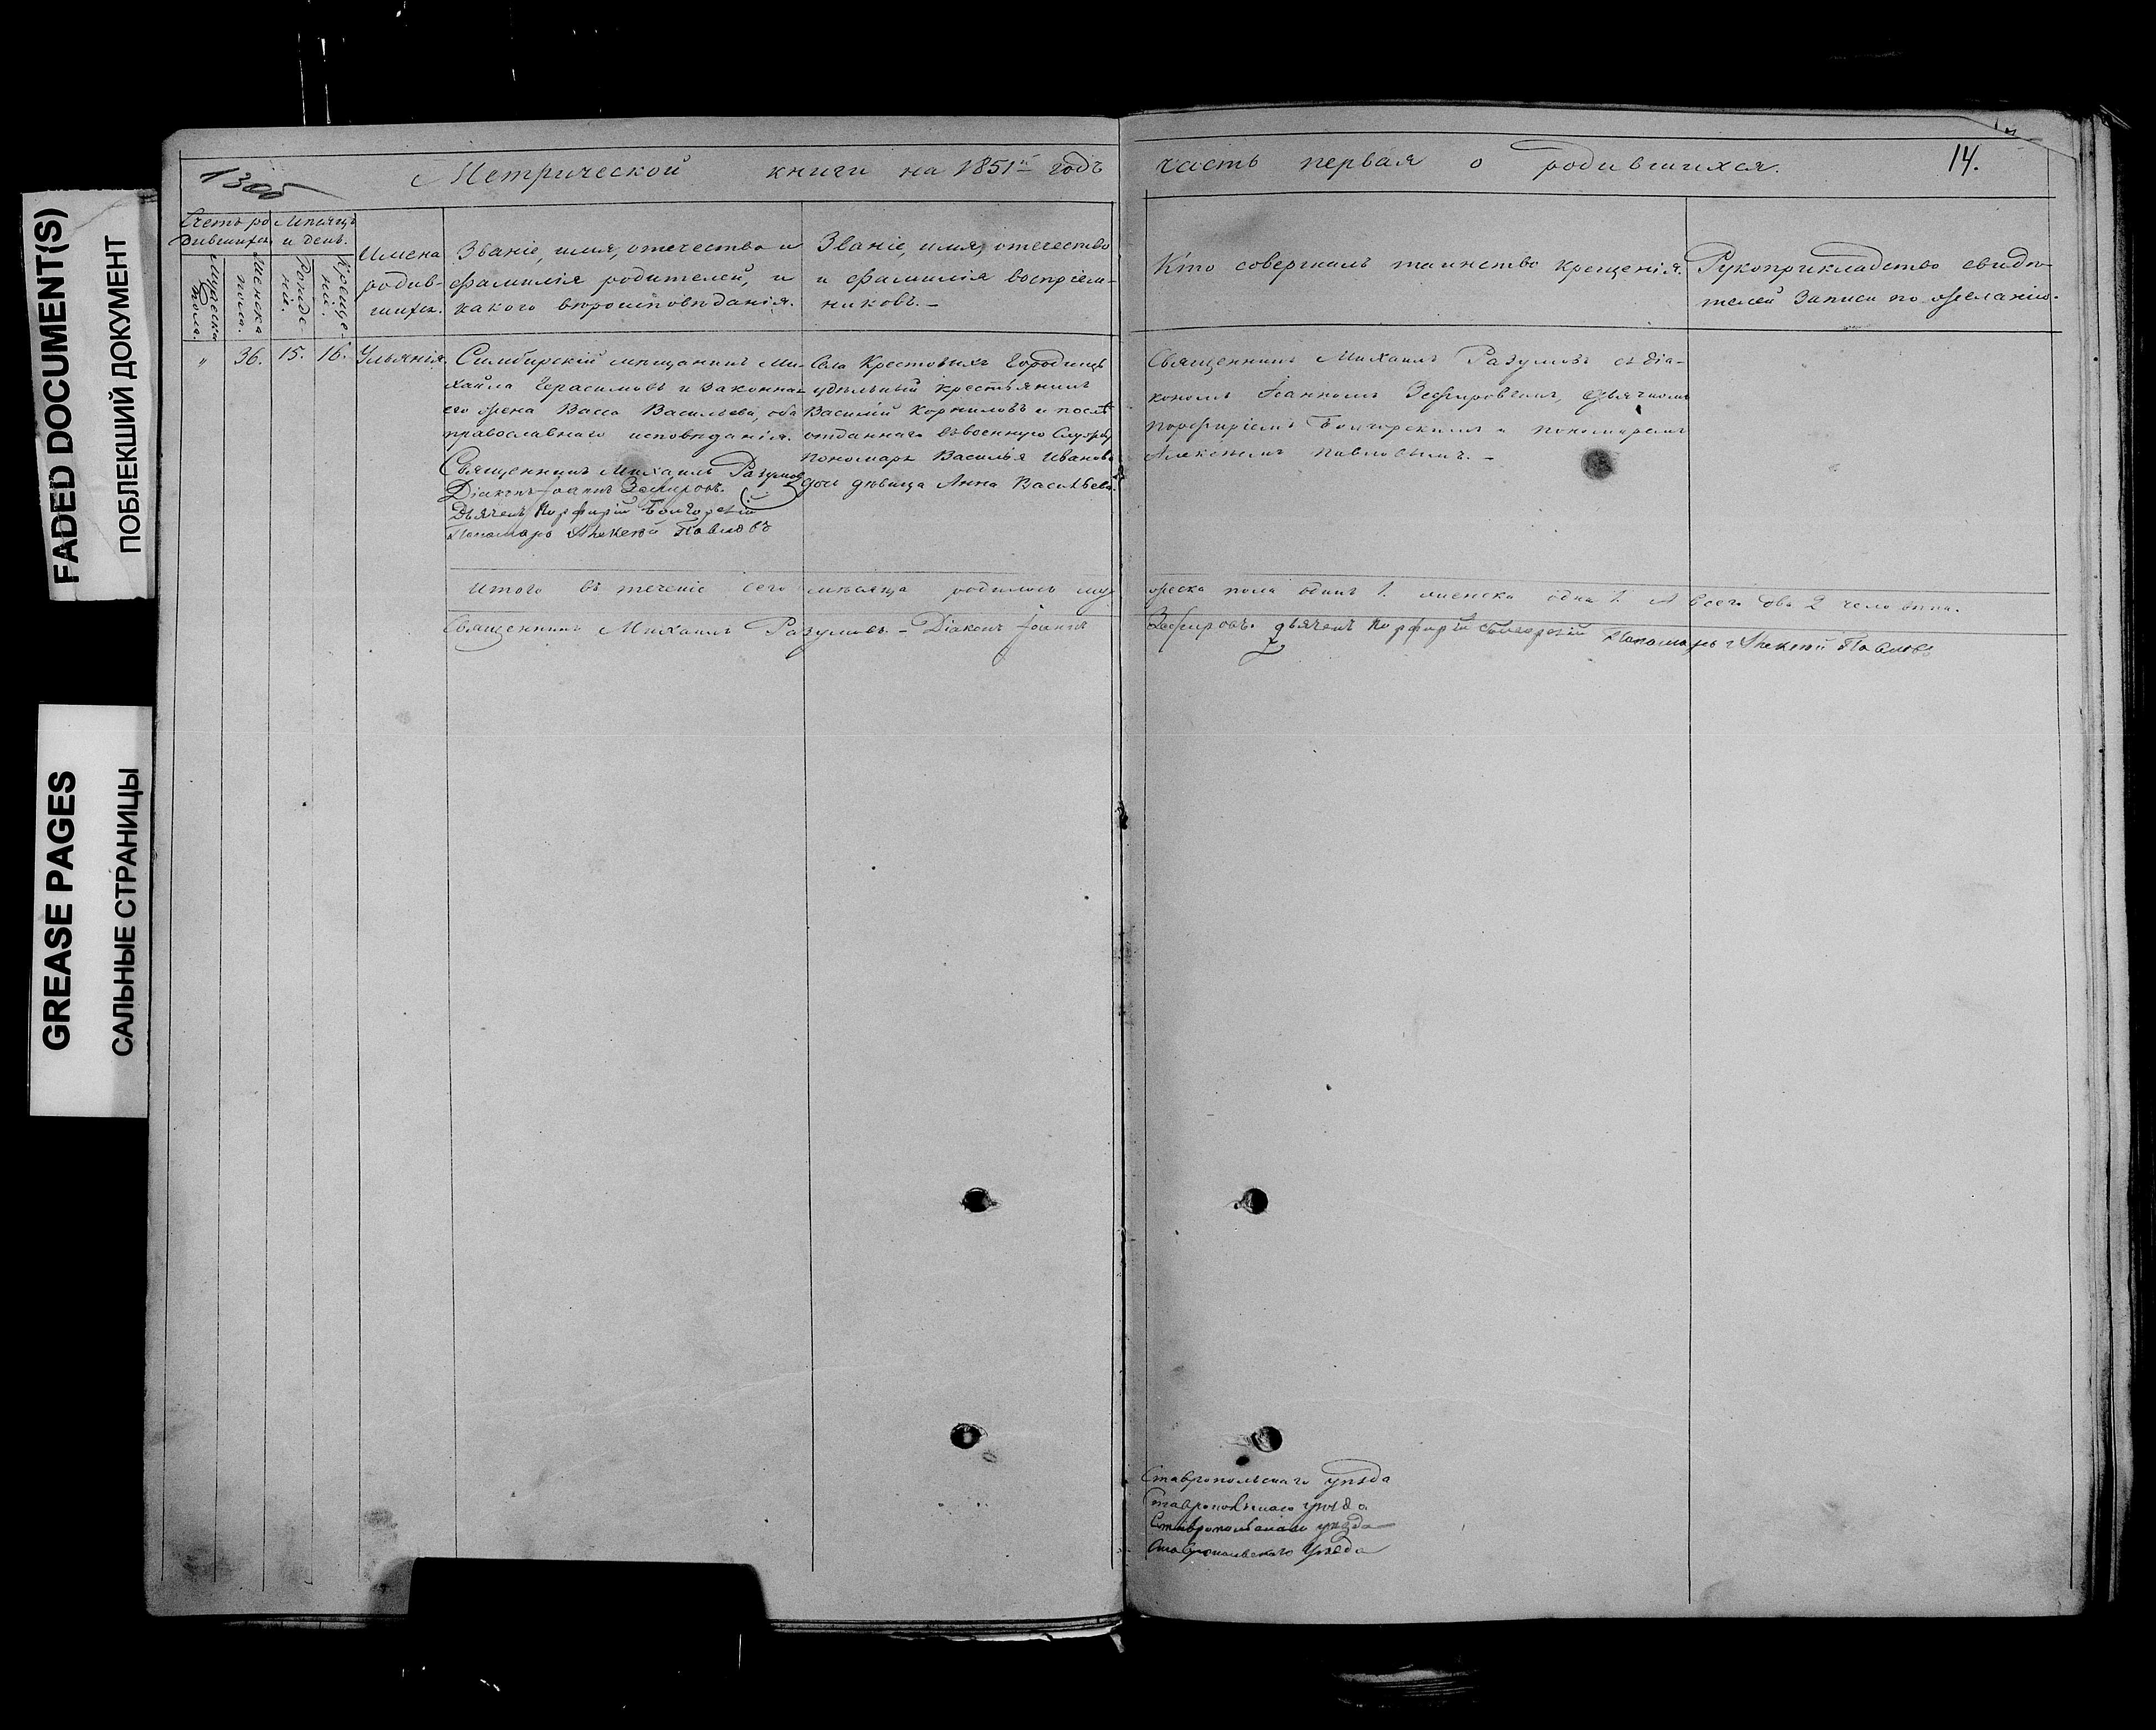 FADED DOCUMENT(S)
ПОБЛЕКШИЙ ДОКУМЕНТ
GREASE PAGES
САЛЬНЫЕ СТРАНИЦЫ
Метрической книги на 1851й годъ
Счетъ ро
дившихся
Мѣсяцъ
и день.
Мужеска
пола.
Женска
пола.
Рожде
нія.
Креще
нія.
Имена
родив-
шихся.
Званіе, имя, отечество и
фамилія родителей, и
какого вѣроисповѣданія.
Званіе, имя, отечество
и фамилія воспріем-
никовъ.-
" 36. 15. 16. Ульянія.
Симбирскій мѣщанинъ Ми-
хайла Герасимовъ и законная
его жена Васса Васильева, оба
православнаго исповѣданія.
Священникъ Михаилъ Разумовъ
Діаконъ Іоаннъ Зефировъ.
Дьячекъ Порфирій
Пономарь Алексѣй Павловъ
Села Крестовыхъ Городищъ
удѣльный крестьянинъ
Василій Корниловъ и послѣ
отданнаго въ военную службу
пономаря Василья Иванова
дочь дѣвица Анна Васильева.
Итого въ теченіе сего мѣсяца родилось му-
Священникъ Михаилъ Разумовъ.- Діаконъ Іоаннъ
часть первая о родившихся.
14.
Кто совершалъ таинство крещенія.
Рукоприкладство свидѣ-
телей записи по желанію.
Священникъ Михаилъ Разумовъ съ діа-
кономъ Іоанномъ Зефировымъ, дьячкомъ
Порфиріемъ и пономаремъ
Алексѣемъ Павловымъ.-
жеска пола одинъ 1. женска одна 1. А всего два 2 человѣка.
Зефировъ. дьячекъ Порфирій Пономарь Алексѣй Павловъ
Ставропольскаго уѣзда
Ставропольскаго уѣзда
Ставропольскаго уѣзда
Ставропольскаго уѣзда